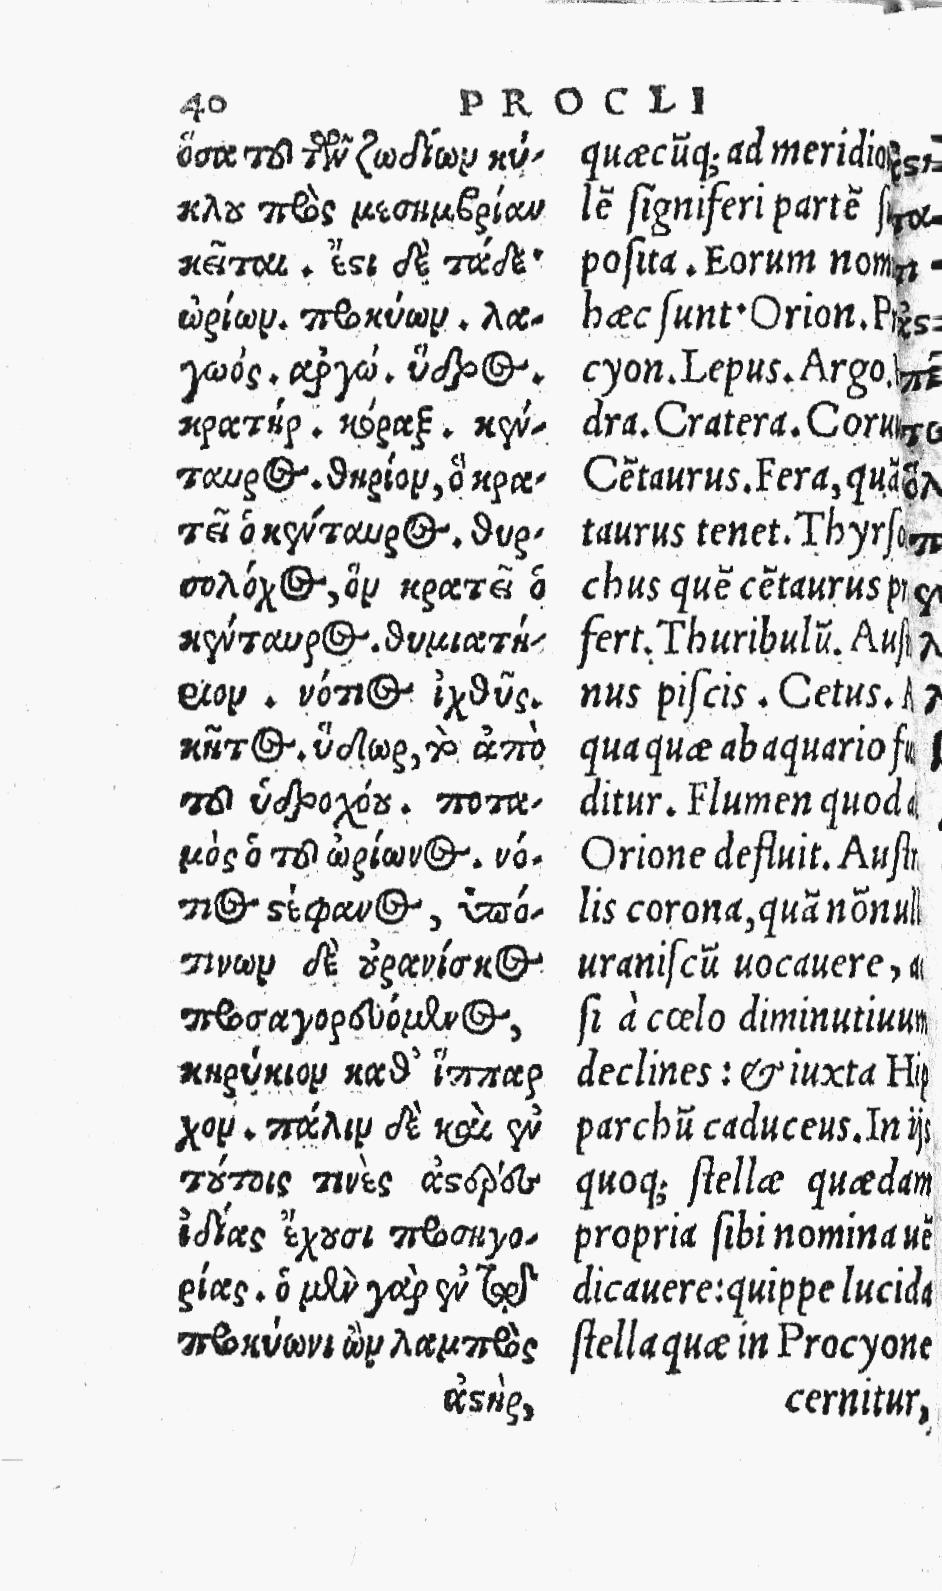 40 PROCLI
ὅσα τοῦ τῶν ζωδίων κύ-
κλου πρὸς μεσημβρίαν
κεῖται. ἔστι δὲ τάδε·
ὠρίων. προκύων. λα-
γωός. ἀργώ. ὕδρος.
κρατήρ. κόραξ. κέν-
ταυρος. θηρίον, ὃ κρα-
τεῖ ὁ κένταυρος. θυρ-
σολόχος, ὃν κρατεῖ ὁ
κένταυρος. θυμιατή-
ριον. νότιος ἰχθῦς.
κῆτος. ὕδωρ, τὸ ἀπὸ
τοῦ ὑδροχόου. ποτα-
μὸς ὁ τοῦ ὠρίωνος. νό-
τιος στέφανος, ὑπό-
τινων δὲ οὐρανίσκος
προσαγορευόμενος,
κηρύκιον καθ' ἵππαρ
χον. πάλιν δὲ καὶ ἐν
τούτοις τινὲς ἀστέρες
ἰδίας ἔχουσι προσηγο-
ρίας. ὁ μὲν γὰρ ἐν τῷ
προκύωνι ὢν λαμπρὸς
ἀστὴρ,
quæcũq; ad meridio
lẽ signiferi partẽ
posita. Eorum nom
hæc sunt· Orion. Pr
cyon. Lepus. Argo.
dra. Cratera. Coru
Cẽtaurus. Fera, quã
taurus tenet. Thyrso
chus quẽ cẽtaurus
fert. Thuribulũ. Aus
nus piscis. Cetus.
qua quæ ab aquario fu
ditur. Flumen quod
Orione defluit. Austr
lis corona, quã nõnull
uraniscũ uocauere,
si à cœlo diminutiuum
declines: & iuxta Hip
parchũ caduceus. In ijs
quoq; stellæ quædam
propria sibi nomina uẽ
dicauere: quippe lucida
stella quæ in Procyone
cernitur,